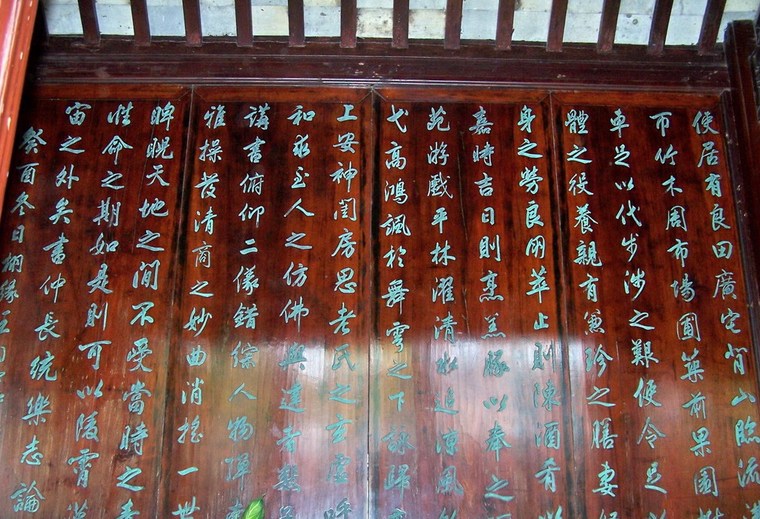 使居有良田廣宅背山臨流
帀竹木周布場圃築前果園
車足以代步涉之艱使令足
體之役養親有兼珍之膳妻
身之勞良朋萃止則陳酒肴以
嘉時吉日則烹羔豚以奉之
苑游戲平林濯清水追涼風
弋高鴻諷於舞雩之下詠歸
上安神閨房思老氏之玄虛呼
和求至人之仿佛與達者
講書俯仰二儀錯綜人物彈
雅操發清商之妙曲消搖一世
睥睨天地之間不受當時之責
性命之期如是則可以陵霄
宙之外矣書仲長統樂志論
癸酉冬日